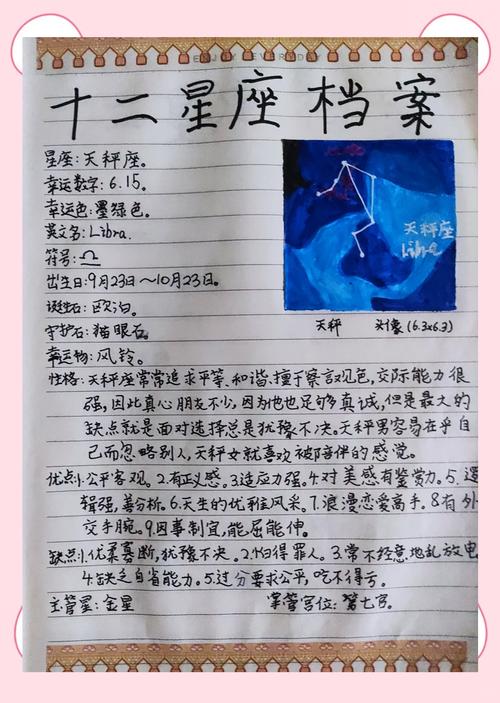 ENJOY EVERYDAY
十二星座档案
星座:天秤座。
幸运数字:6.15。
幸运色:墨绿色。
英文名:Libra.
符号:♎
出生日:9月23日~10月23日。
诞生石:欧泊。
守护石:猫眼石。
幸运物:风铃。
天秤座
Libra
天秤 头像(6.3x6.3)
性格:天秤座常常追求平等、和谐、擅于察言观色,交际能力很
强,因此真心朋友不少,因为他也足够真诚,但是最大的
缺点就是面对选择总是犹豫不决。天秤男容易在乎自
己而忽略别人,天秤女就喜欢被陪伴的感觉。
优点:1.公平客观。2.有正义感。3.适应力强。4.对美感有鉴赏力。5.逻
辑强,善分析。6.天生的优雅风采。7.浪漫恋爱高手。8.有外
交手腕。9.因事制宜,能屈能伸。
缺点:1.优柔寡断,犹豫不决。2.怕得罪人。3.常不经意地乱放电
4.缺乏自省能力。5.过分要求公平,吃不得亏。
主管星:金星 掌管宫位:第七宫。